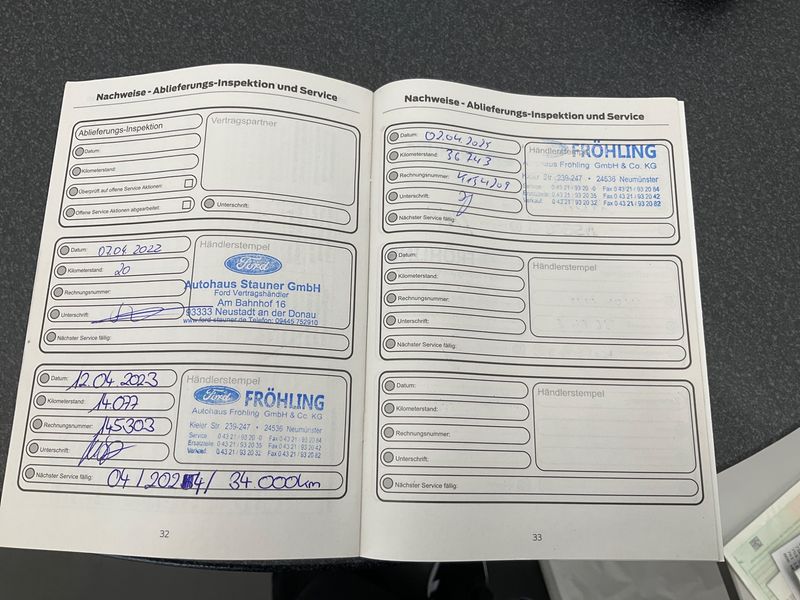 Nachweise - Ablieferungs-Inspektion und Service
Ablieferungs-Inspektion
Datum:
Kilometerstand:
Überprüft auf offene Service Aktionen:
Offene Service Aktionen abgearbeitet:
Vertragspartner
Unterschrift:
Datum: 07.04.2022
Kilometerstand: 20
Rechnungsnummer:
Unterschrift:
Nächster Service fällig:
Händlerstempel
Ford
Autohaus Stauner GmbH
Ford Vertragshändler
Am Bahnhof 16
93333 Neustadt an der Donau
www.ford-stauner.de Telefon: 09445 752910
Datum: 12.04.2023
Kilometerstand: 14.077
Rechnungsnummer: 145303
Unterschrift:
Nächster Service fällig: 04/2024/ 34.000km
Händlerstempel
Ford FRÖHLING
Autohaus Fröhling GmbH & Co. KG
Kieler Str. 239-247 • 24536 Neumünster
Service 0 43 21 / 93 20 - 0 Fax 0 43 21 / 93 20 64
Ersatzteile 0 43 21 / 93 20 35 Fax 0 43 21 / 93 20 42
Verkauf 0 43 21 / 93 20 32 Fax 0 43 21 / 93 20 82
32
Nachweise - Ablieferungs-Inspektion und Service
Datum: 02.04.2024
Kilometerstand: 36743
Rechnungsnummer:
Unterschrift:
Nächster Service fällig:
Händlerstempel
FRÖHLING
Autohaus Fröhling GmbH & Co. KG
Kieler Str. 239-247 • 24536 Neumünster
Service 0 43 21 / 93 20 -0 Fax 0 43 21 / 93 20 64
Ersatzteile 0 43 21 / 93 20 35 Fax 0 43 21 / 93 20 42
Verkauf 0 43 21 / 93 20 32 Fax 0 43 21 / 93 20 82
Datum:
Kilometerstand:
Rechnungsnummer:
Unterschrift:
Nächster Service fällig:
Händlerstempel
Datum:
Kilometerstand:
Rechnungsnummer:
Unterschrift:
Nächster Service fällig:
Händlerstempel
33